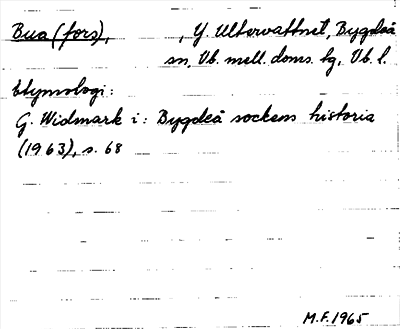 Bua (fors), , Y. Ultervattnet, Bygdeå
sn, Vb. mell. doms. tg, Vb. l.
Etymologi:
G. Widmark i: Bygdeå sockens historia
(1963), s. 68
M.F. 1965